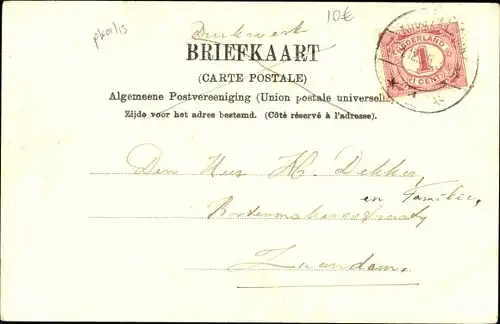 Drukwerk
10€
BRIEFKAART
(CARTE POSTALE)
Algemeene Postvereeniging (Union postale universelle)
Zijde voor het adres bestemd. (Côté réservé à l'adresse).
NEDERLAND
1
CENT
Den Heer H. Dekker
en Familie,
Bootenmakersstraat
Zaandam.